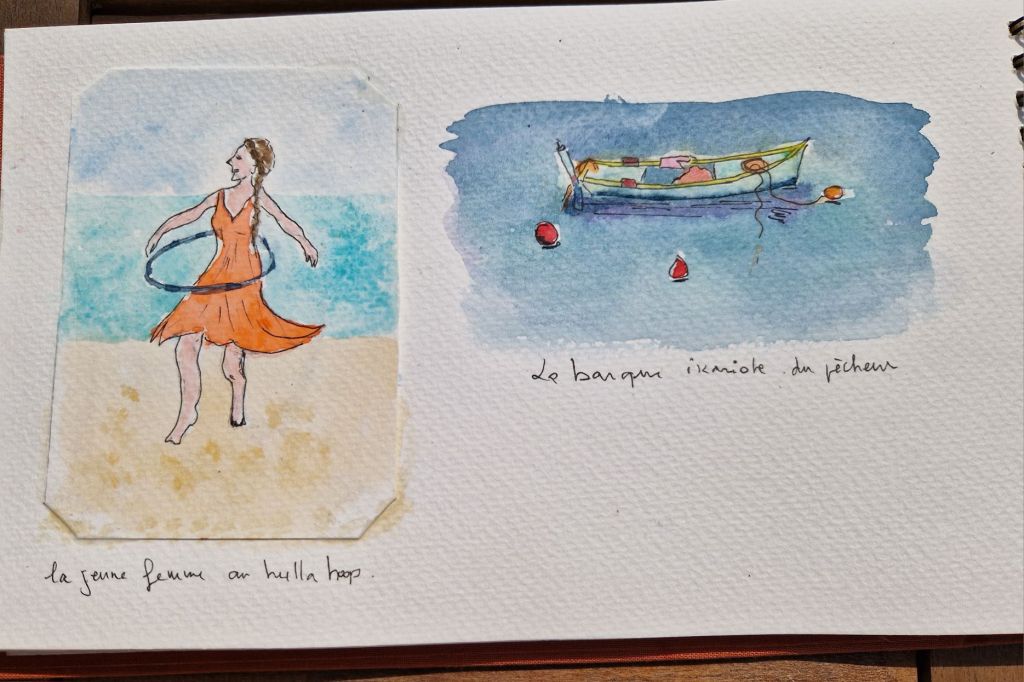 La barque ikariote du pêcheur
la jeune femme au hulla hoop.